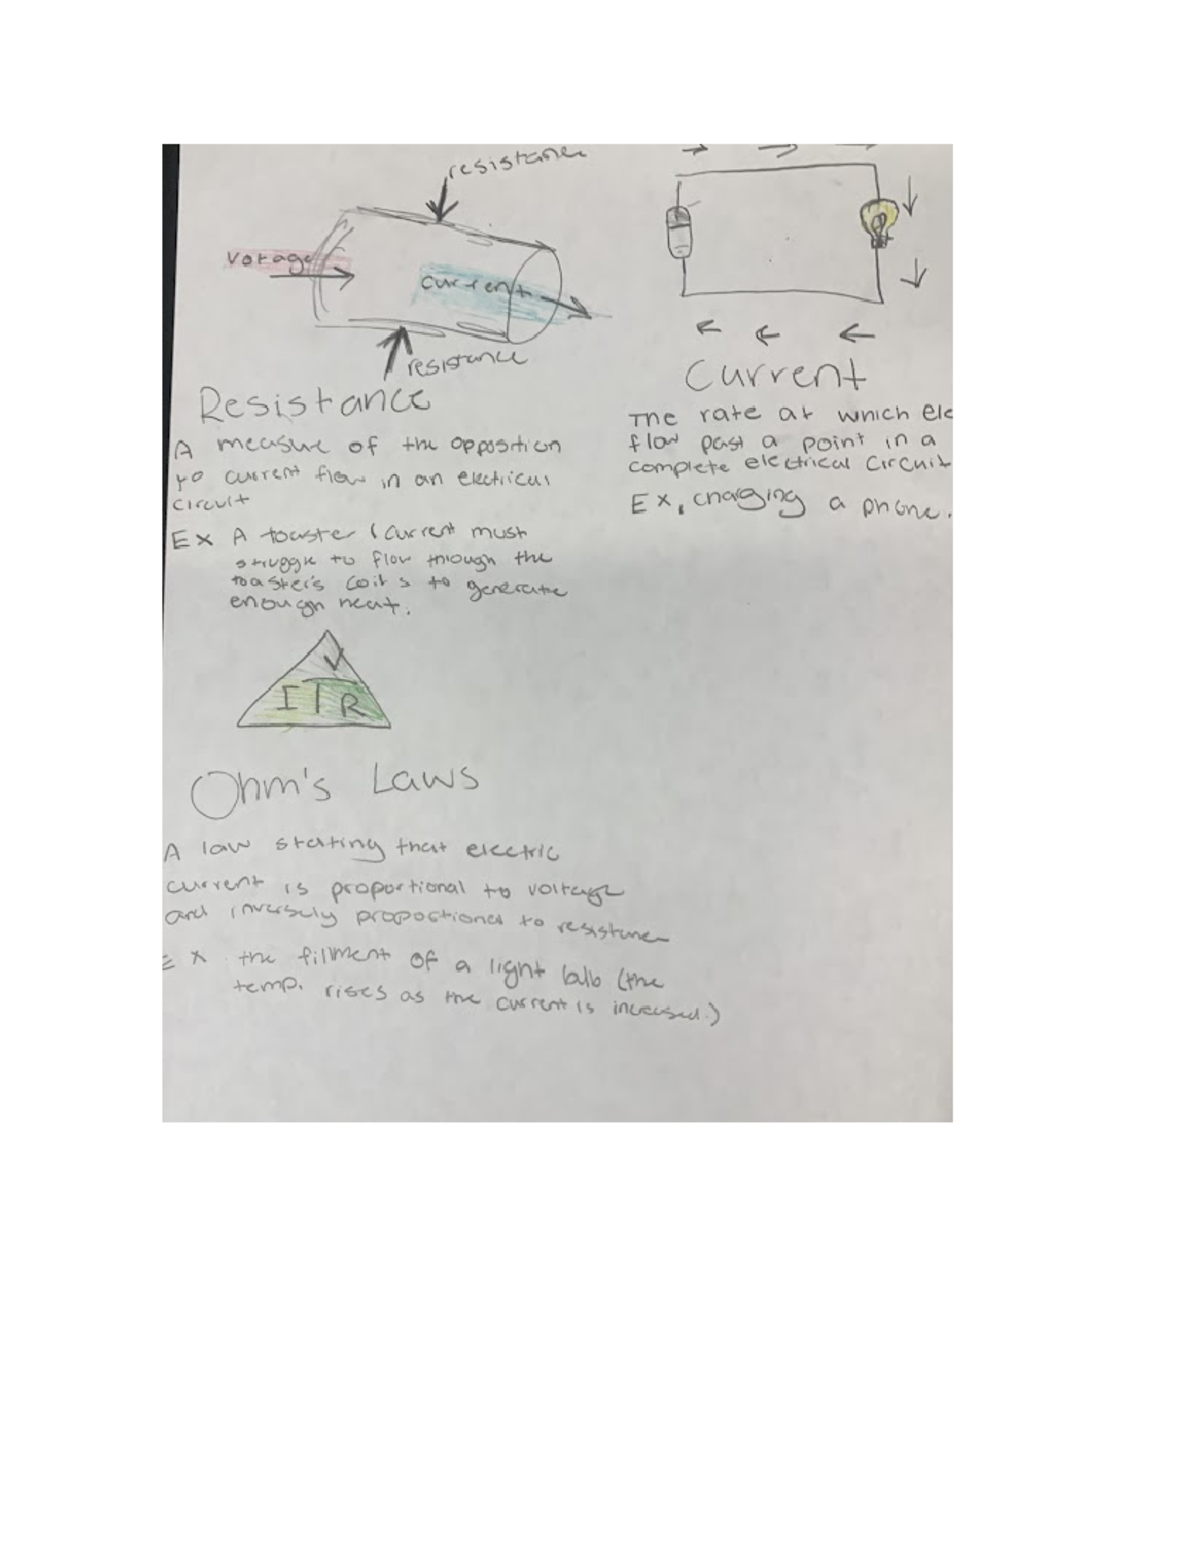 resistance
votage
current
resistance
Resistance
A measure of the opposition
to current flow in an electrical
circuit
Ex A toaster (current must
struggle to flow through the
toaster's coils to generate
enough heat.
Current
The rate at which ele
flow past a point in a
complete electrical circuit
Ex, charging a phone.
V
I R
Ohm's Laws
A law stating that electric
current is proportional to voltage
and inversely proportional to resistance
Ex the fillment of a light bulb (the
temp. rises as the current is increased.)